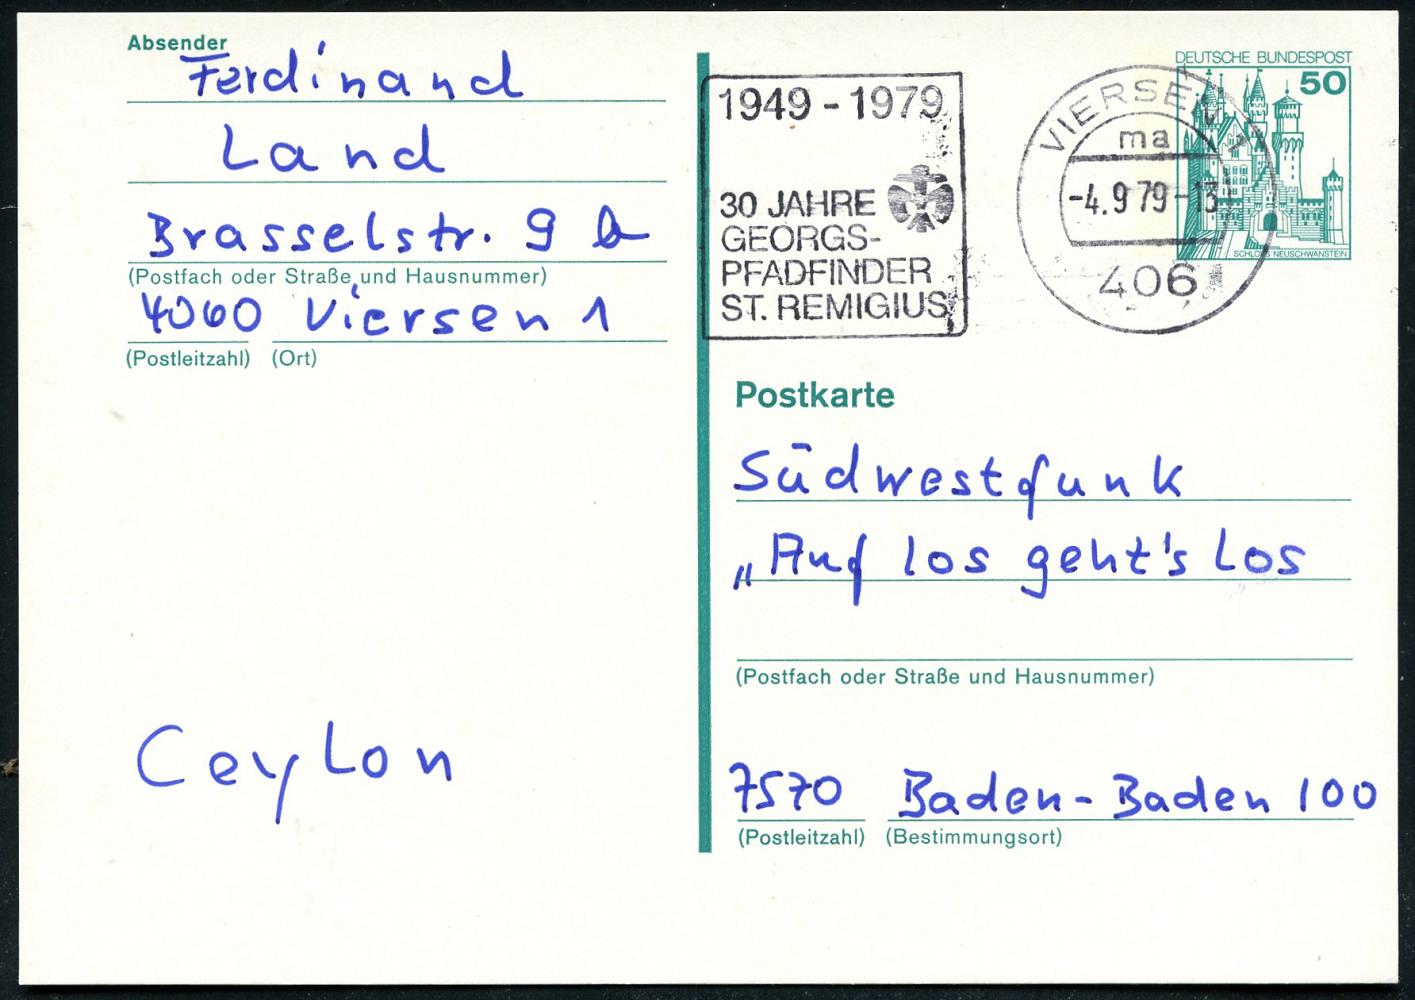 Absender
Ferdinand
Land
Brasselstr. 9 b
(Postfach oder Straße und Hausnummer)
4060 Viersen 1
(Postleitzahl) (Ort)
1949 - 1979
30 JAHRE
GEORGS-
PFADFINDER
ST. REMIGIUS
VIERSEN 1
ma
-4.9.79-13
406
DEUTSCHE BUNDESPOST
50
SCHLOSS NEUSCHWANSTEIN
Postkarte
Südwestfunk
„Auf los geht's Los
(Postfach oder Straße und Hausnummer)
7570 Baden-Baden 100
(Postleitzahl) (Bestimmungsort)
Ceylon